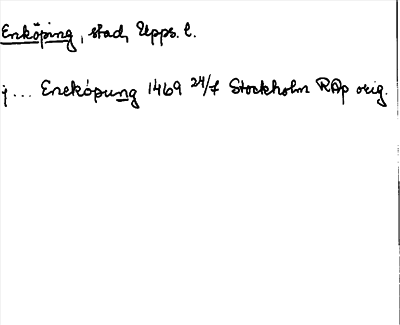 Enköping, stad, Upps. l.
j ... Enekopung 1469 24/7 Stockholm RAp orig.